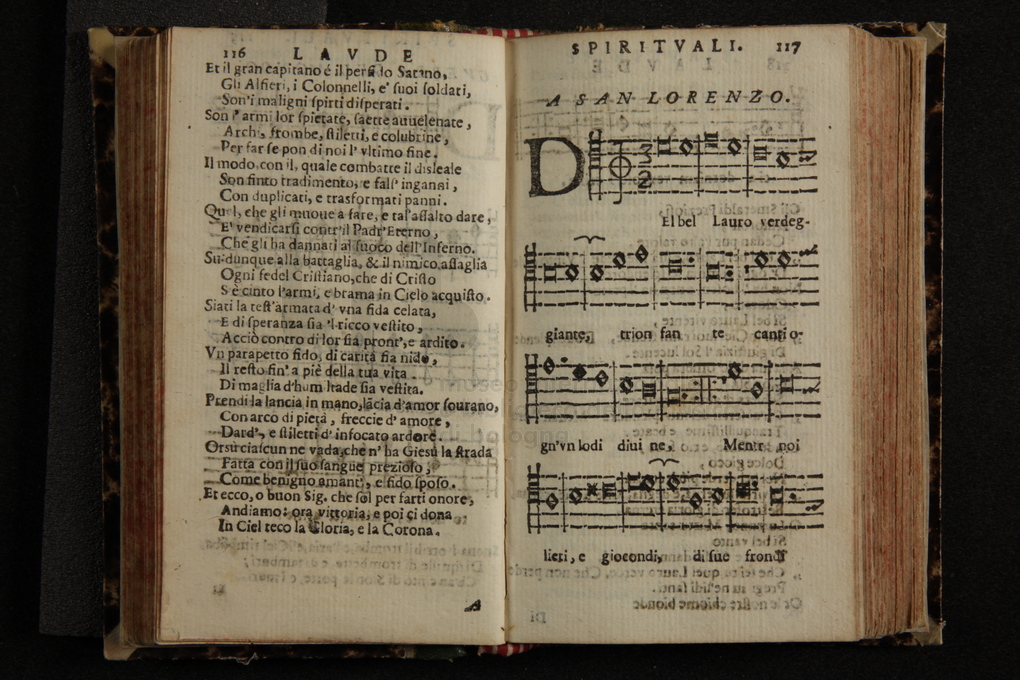 116 LAVDE
Et il gran capitano é il perfido Satano,
Gli Alfieri, i Colonnelli, e' suoi soldati,
Son'i maligni spirti disperati.
Son l'armi lor spietate, saette auuelenate,
Archi, frombe, stiletti, e colubrine,
Per far se pon di noi l'vltimo fine.
Il modo con il quale combatte il disleale
Son finto tradimento, e fals' inganni,
Con duplicati, e trasformati panni.
Quel, che gli muoue a fare, e tal'assalto dare,
E' vendicarsi contr'il Padr'Eterno,
Che gli ha dannati al fuoco dell'Inferno.
Su dunque alla battaglia, & il nimico assaglia
Ogni fedel Cristiano, che di Cristo
S'è cinto l'armi, e brama in Cielo acquisto.
Siati la test'armata d'vna fida celata,
E di speranza sia 'l ricco vestito,
Acciò contro di lor sia pront', e ardito.
Vn parapetto fido, di carità sia nido,
Il resto fin' a piè della tua vita.
Di maglia d'humiltade sia vestita.
Prendi la lancia in mano, lācia d'amor sourano,
Con arco di pietà, freccie d'amore,
Dard', e stiletti d'infocato ardore.
Orsù ciascun ne vada, che n'ha Giesù la strada
Fatta con il suo sangue prezioso,
Come benigno amant', e fido sposo.
Et ecco, o buon Sig. che sol per farti onore,
Andiamo: ora vittoria, e poi ci dona
In Ciel teco la Gloria, e la Corona.
A
SPIRITVALI. 117
A SAN LORENZO.
D 3 2
El bel Lauro verdeg-
giante, trion fan te canti o-
gn'vn lodi diui ne, Mentr noi
lieti, e giocondi, di sue frondi